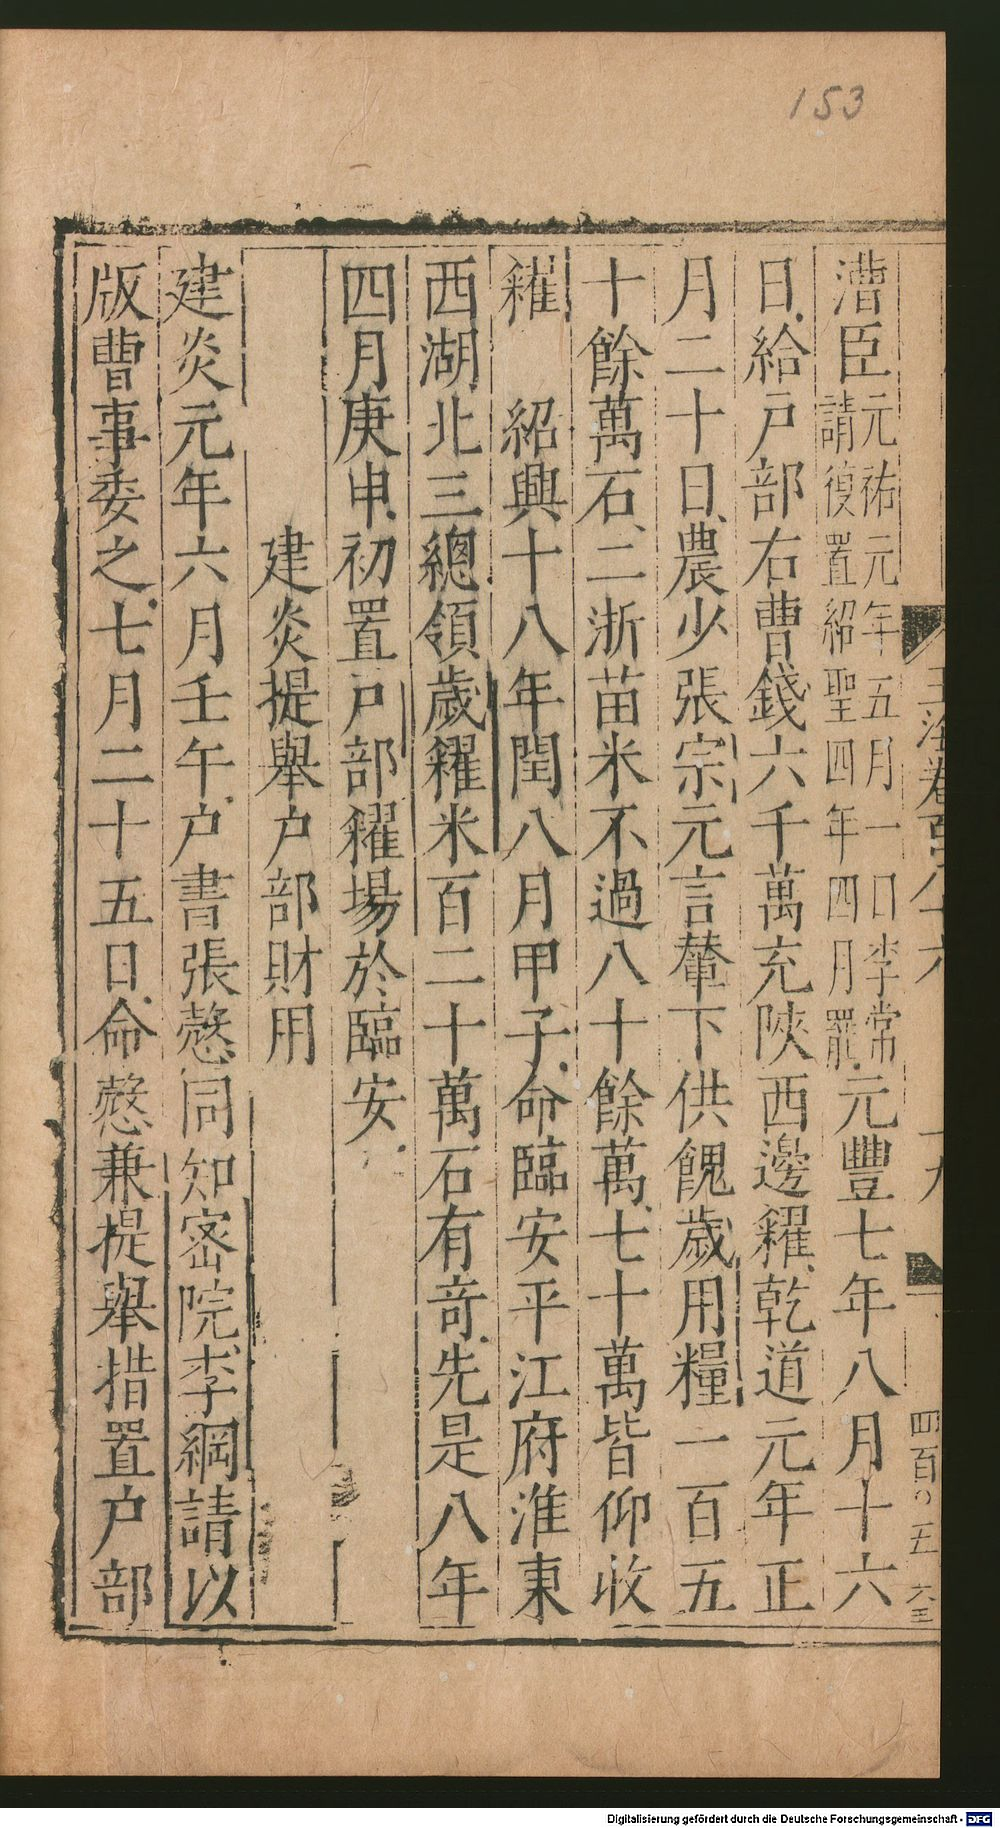 153
漕臣元祐元年五月一日李常請復置紹聖四年四月罷元豐七年八月十六
日給戶部右曹錢六千萬充陝西邊糴乾道元年正
月二十日農少張宗元言輦下供餽歲用糧一百五
十餘萬石二浙苗米不過八十餘萬七十萬皆仰收
糴 紹興十八年閏八月甲子命臨安平江府淮東
西湖北三總領歲糴米百二十萬石有奇先是八年
四月庚申初置戶部糴場於臨安
建炎提舉戶部財用
建炎元年六月壬午戶書張慤同知密院李綱請以
版曹事委之七月二十五日命慤兼提舉措置戶部
玉海卷百八十六
十九
四百〇五
Digitalisierung gefördert durch die Deutsche Forschungsgemeinschaft - DFG